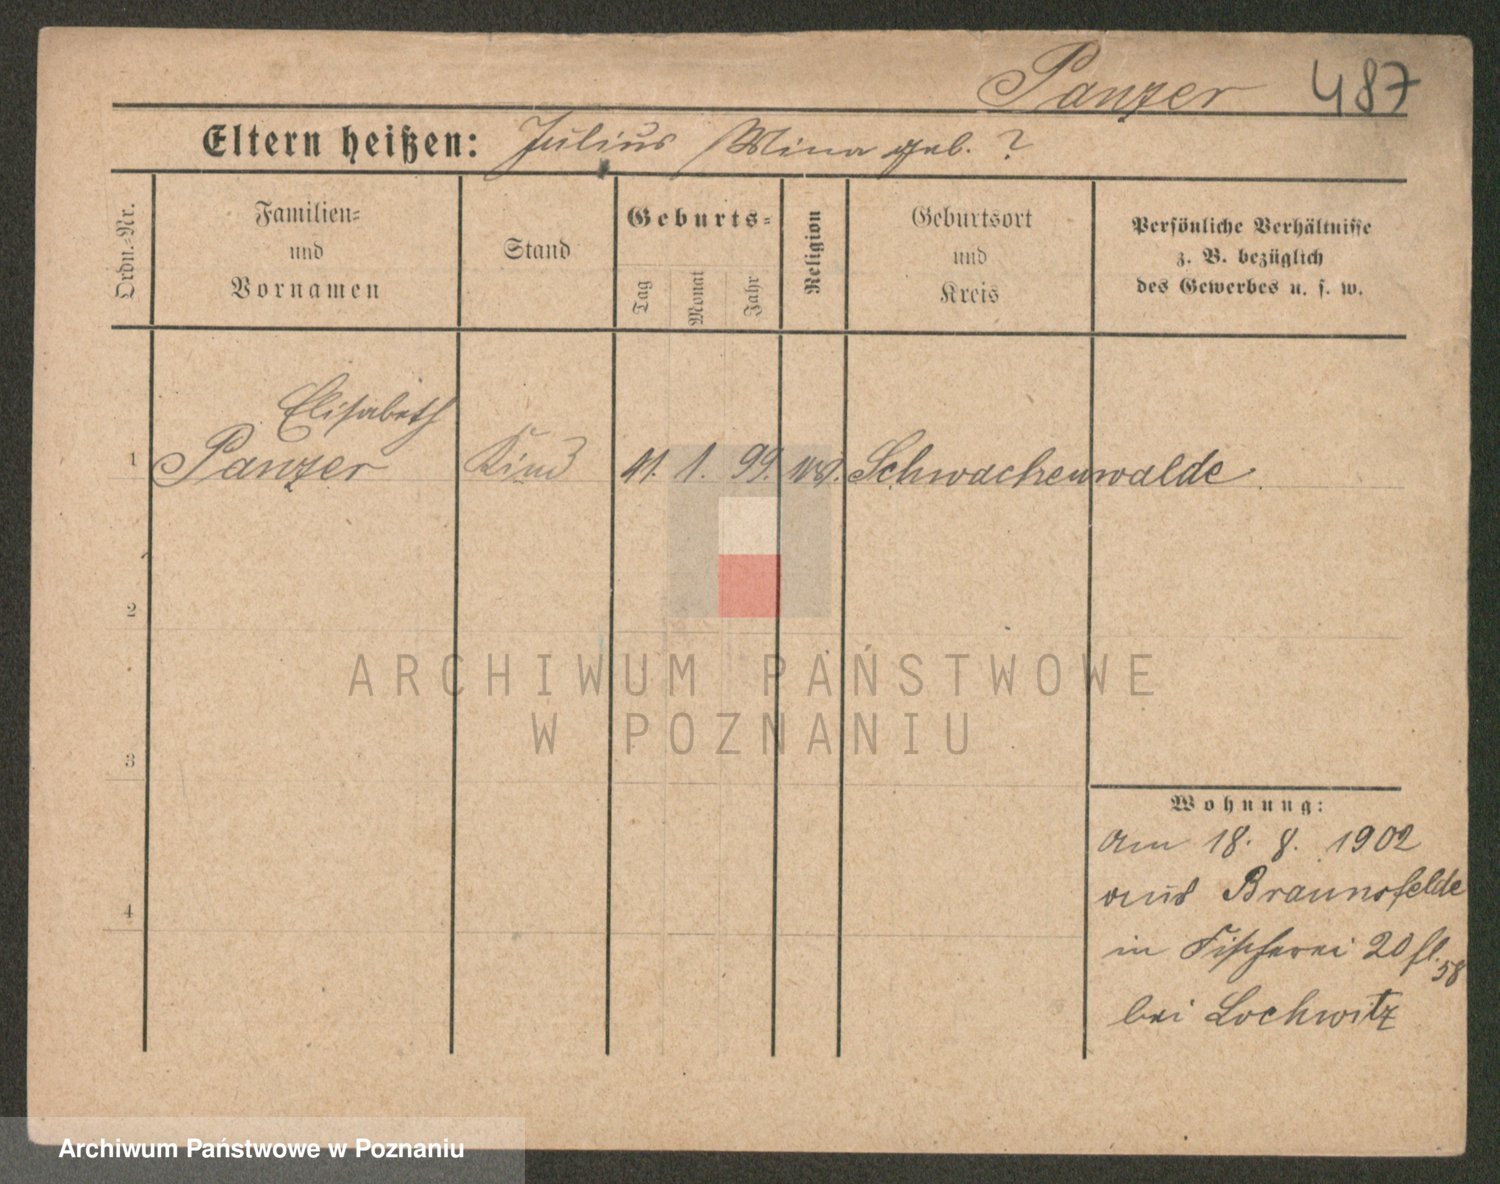 Panzer 487
Eltern heißen: Julius Mina geb. ?
Ordn.-Nr.
Familien-
und
Vornamen
Stand
Geburts-
Tag
Monat
Jahr
Religion
Geburtsort
und
Kreis
Persönliche Verhältnisse
z. B. bezüglich
des Gewerbes u. s. w.
Elisabeth
1 Panzer Kind 1. 99. Schwachenwalde.
2
ARCHIWUM PAŃSTWOWE
W POZNANIU
3
Wohnung:
am 18. 8. 1902
aus Braunsfelde
4
in Fischerei 20 fl. 58
bei Lochwitz
Archiwum Państwowe w Poznaniu